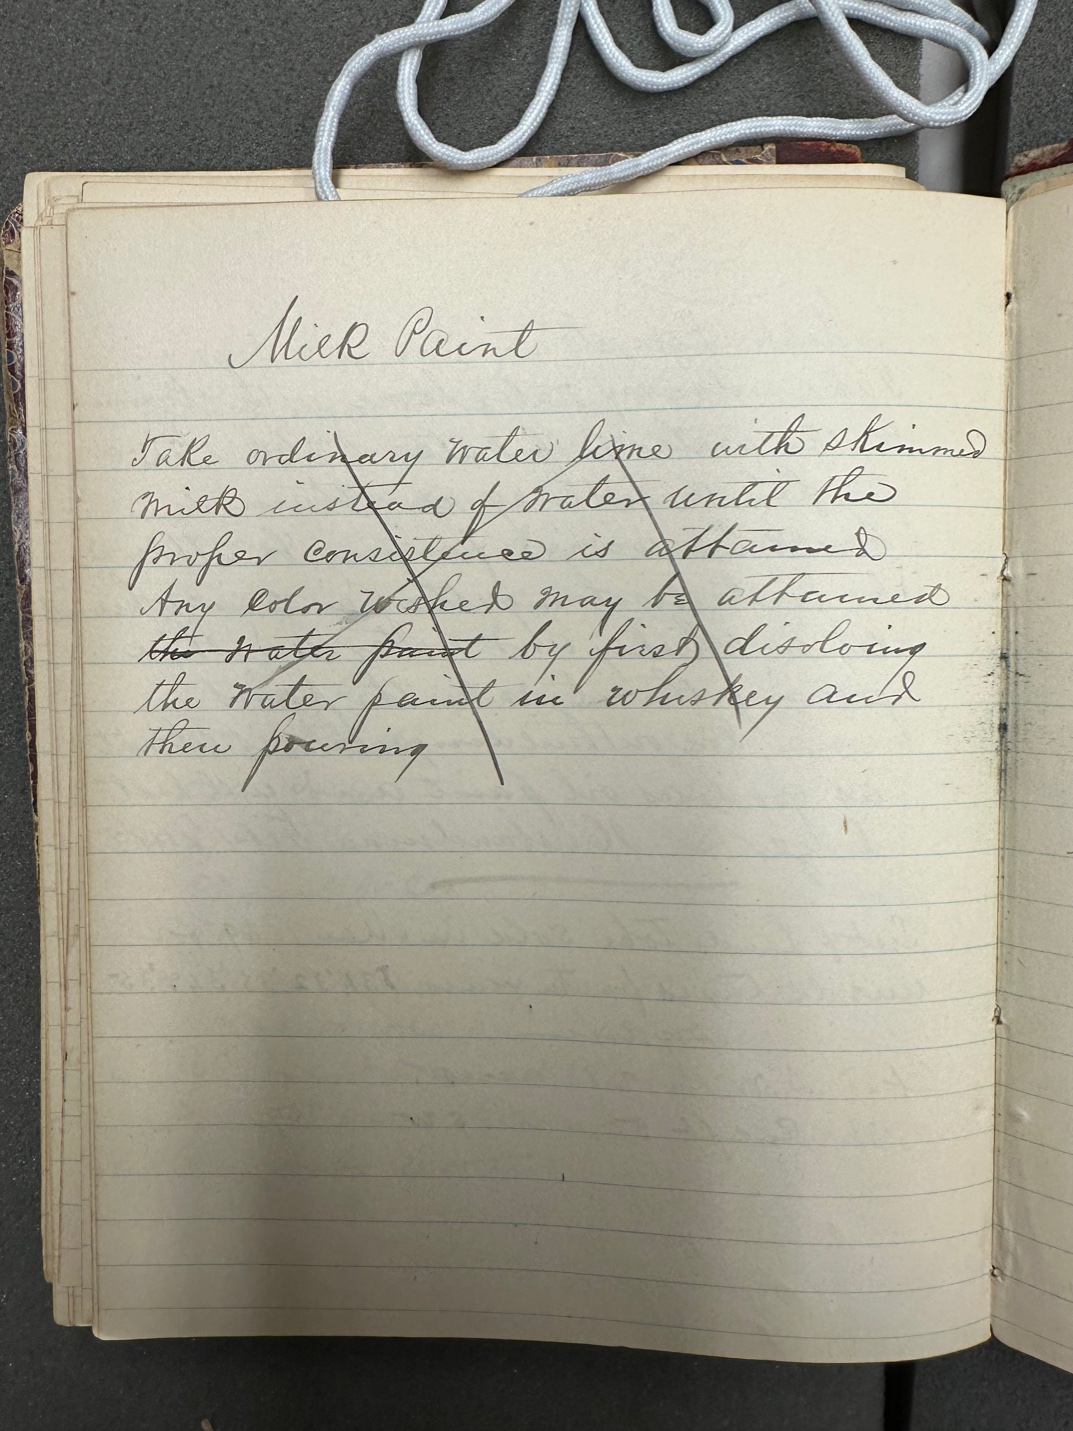 Milk Paint
Take ordinary water lime with skimmed
milk instead of water until the
proper consistence is attained
Any color wished may be attained
the water paint by first disolving
the water paint in whiskey and
then pouring